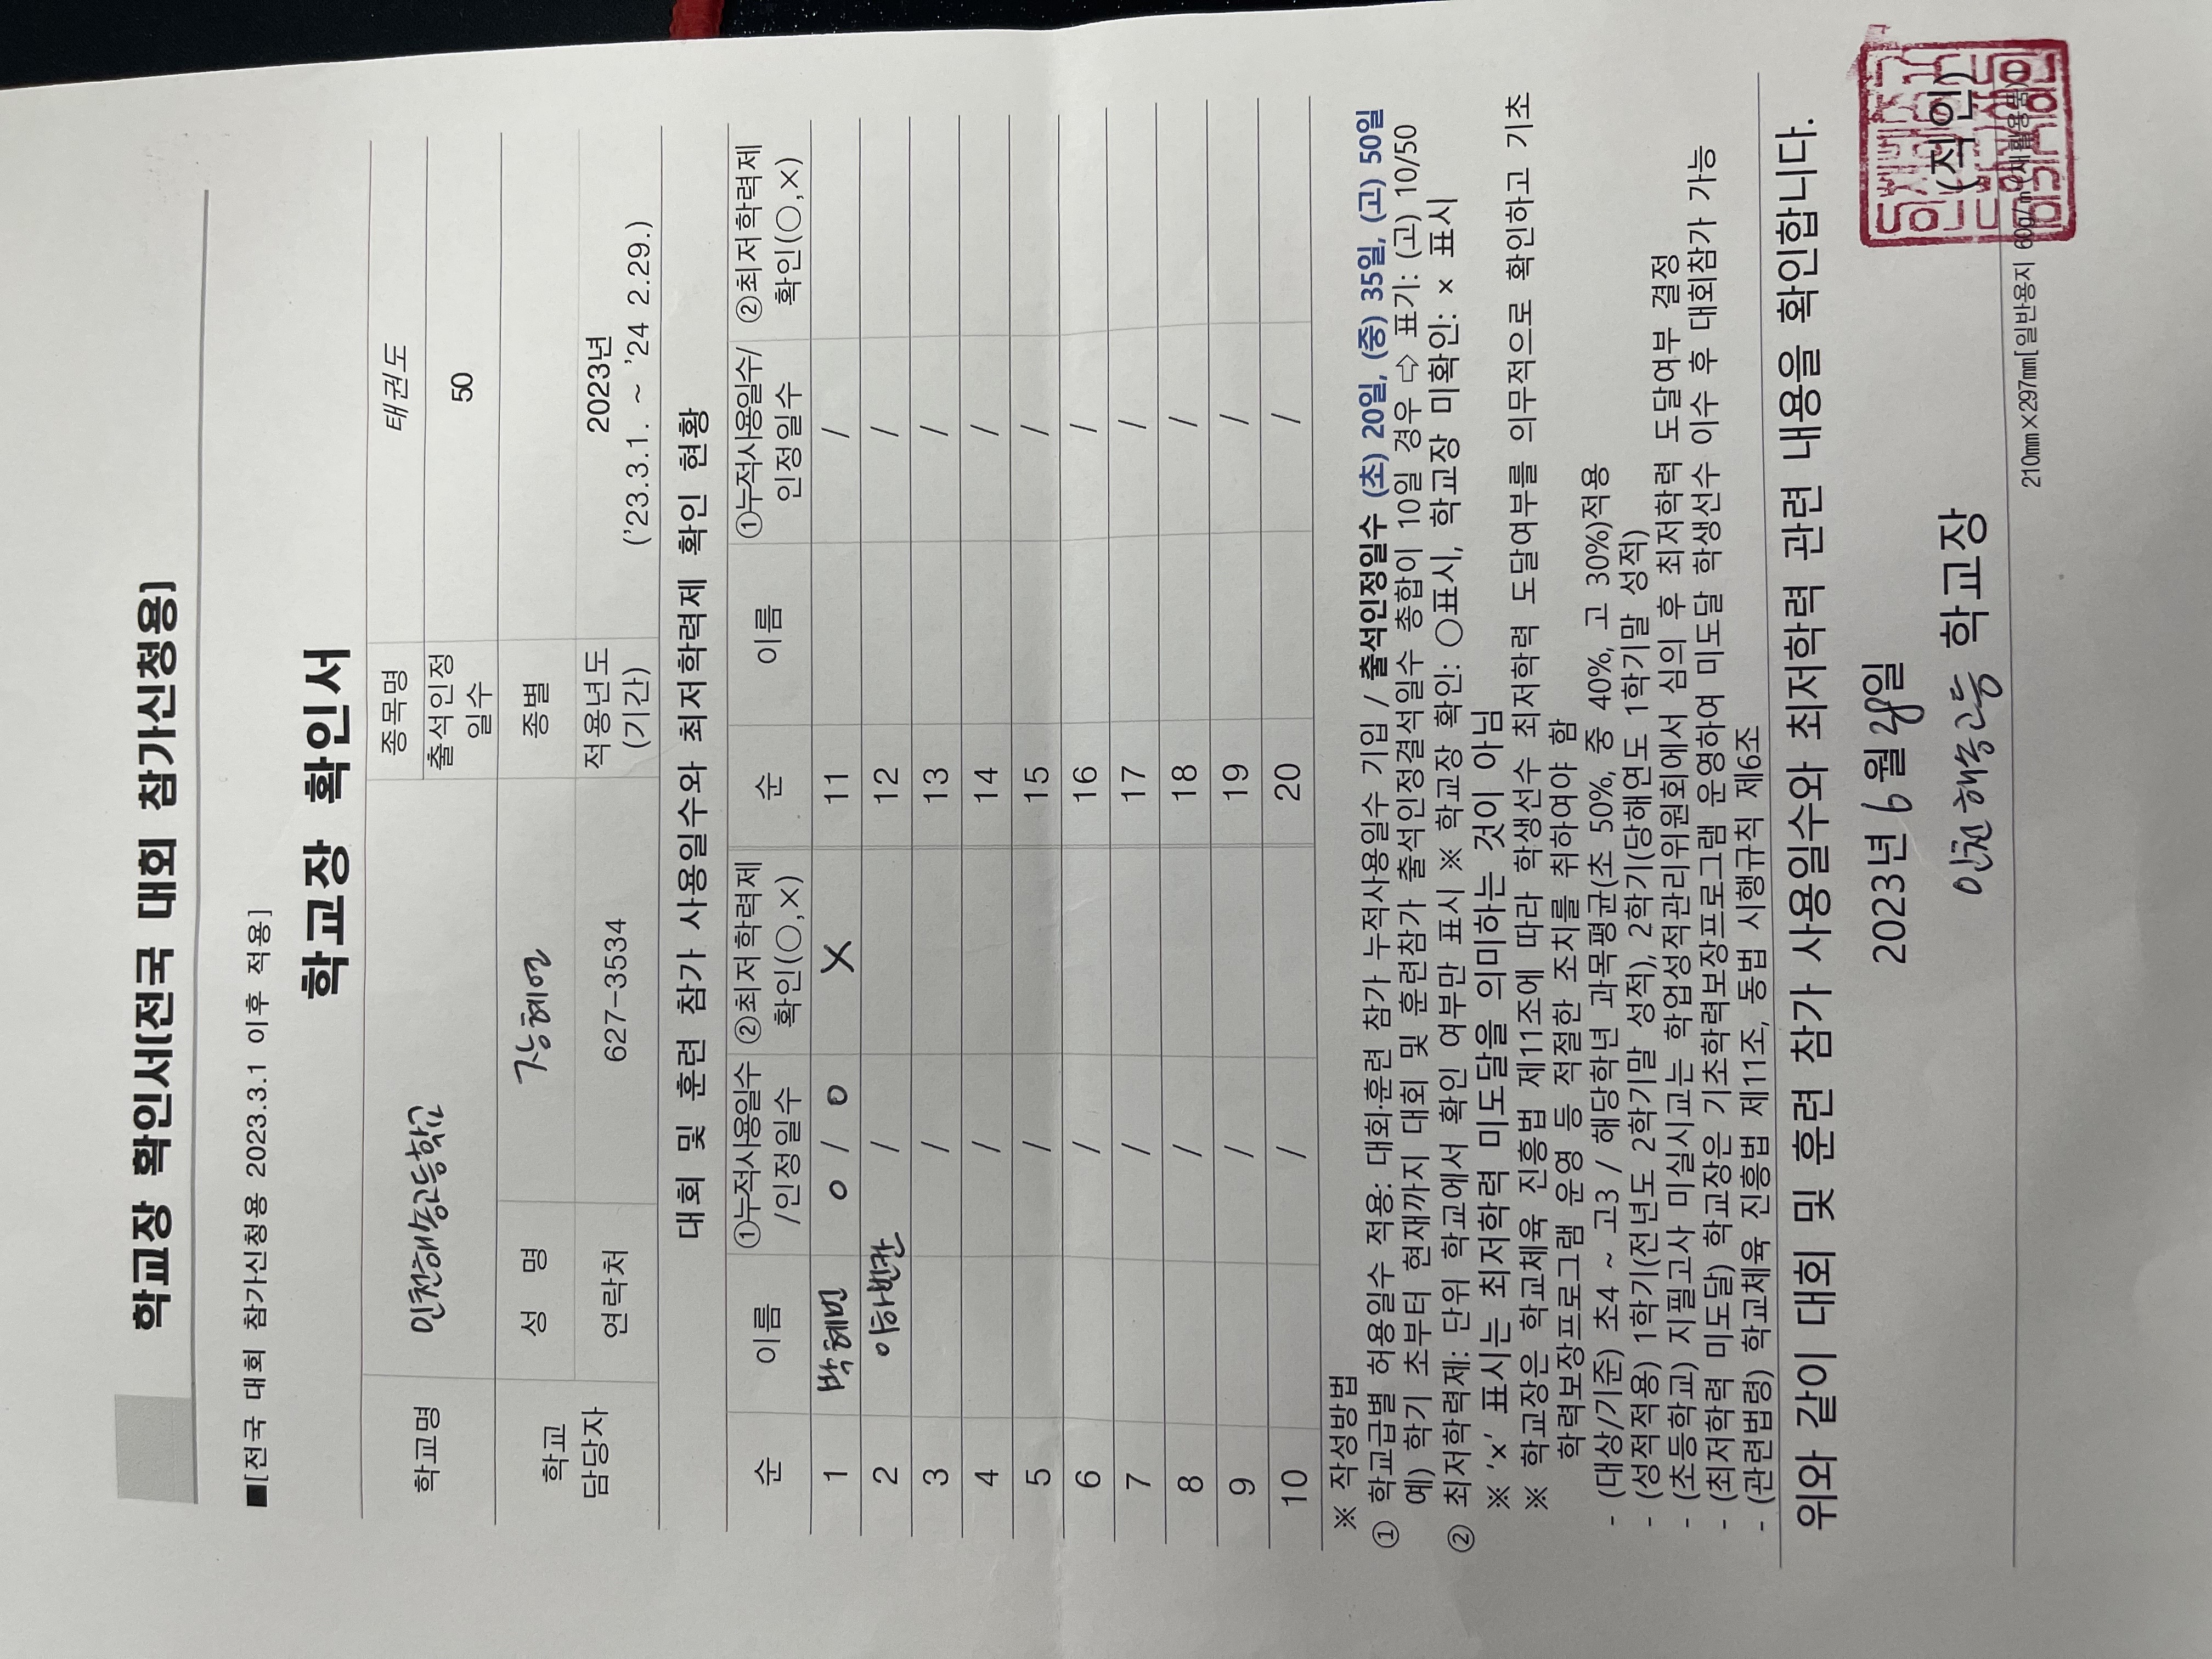 학교장 확인서(전국 대회 참가신청용)
■[전국 대회 참가신청용 2023.3.1 이후 적용]
학교장 확인서
학교명 인천해송고등학교 종목명 태권도
출석인정 일수 50
학교 담당자 성 명 강혜연 종별
연락처 627-3534 적용년도 (기간) 2023년
('23.3.1. ~ '24 2.29.)
대회 및 훈련 참가 사용일수와 최저학력제 확인 현황
순 이름 ①누적사용일수 /인정일수 ②최저학력제 확인(○,×) 순 이름 ①누적사용일수/ 인정일수 ②최저학력제 확인(○,×)
1 박혜번 0 / 0 X 11 /
2 / 12 /
3 / 13 /
4 / 14 /
5 / 15 /
6 / 16 /
7 / 17 /
8 / 18 /
9 / 19 /
10 / 20 /
※ 작성방법
① 학교급별 허용일수 적용: 대회·훈련 참가 누적사용일수 기입 / 출석인정일수 (초) 20일, (중) 35일, (고) 50일
예) 학기 초부터 현재까지 대회 및 훈련참가 출석인정결석일수 총합이 10일 경우 ⇨ 표기: (고) 10/50
② 최저학력제: 단위 학교에서 확인 여부만 표시 ※ 학교장 확인: ○표시, 학교장 미확인: × 표시
※ '×' 표시는 최저학력 미도달을 의미하는 것이 아님
※ 학교장은 학교체육 진흥법 제11조에 따라 학생선수 최저학력 도달여부를 의무적으로 확인하고 기초
학력보장프로그램 운영 등 적절한 조치를 취하여야 함
- (대상/기준) 초4 ~ 고3 / 해당학년 과목평균(초 50%, 중 40%, 고 30%)적용
- (성적적용) 1학기(전년도 2학기말 성적), 2학기(당해연도 1학기말 성적)
- (초등학교) 지필고사 미실시교는 학업성적관리위원회에서 심의 후 최저학력 도달여부 결정
- (최저학력 미도달) 학교장은 기초학력보장프로그램 운영하여 미도달 학생선수 이수 후 대회참가 가능
- (관련법령) 학교체육 진흥법 제11조, 동법 시행규칙 제6조
위와 같이 대회 및 훈련 참가 사용일수와 최저학력 관련 내용을 확인합니다.
2023년 6월 일
인천해송고등 학교장 (직인)
210㎜×297㎜[일반용지 60g/㎡(재활용품)]